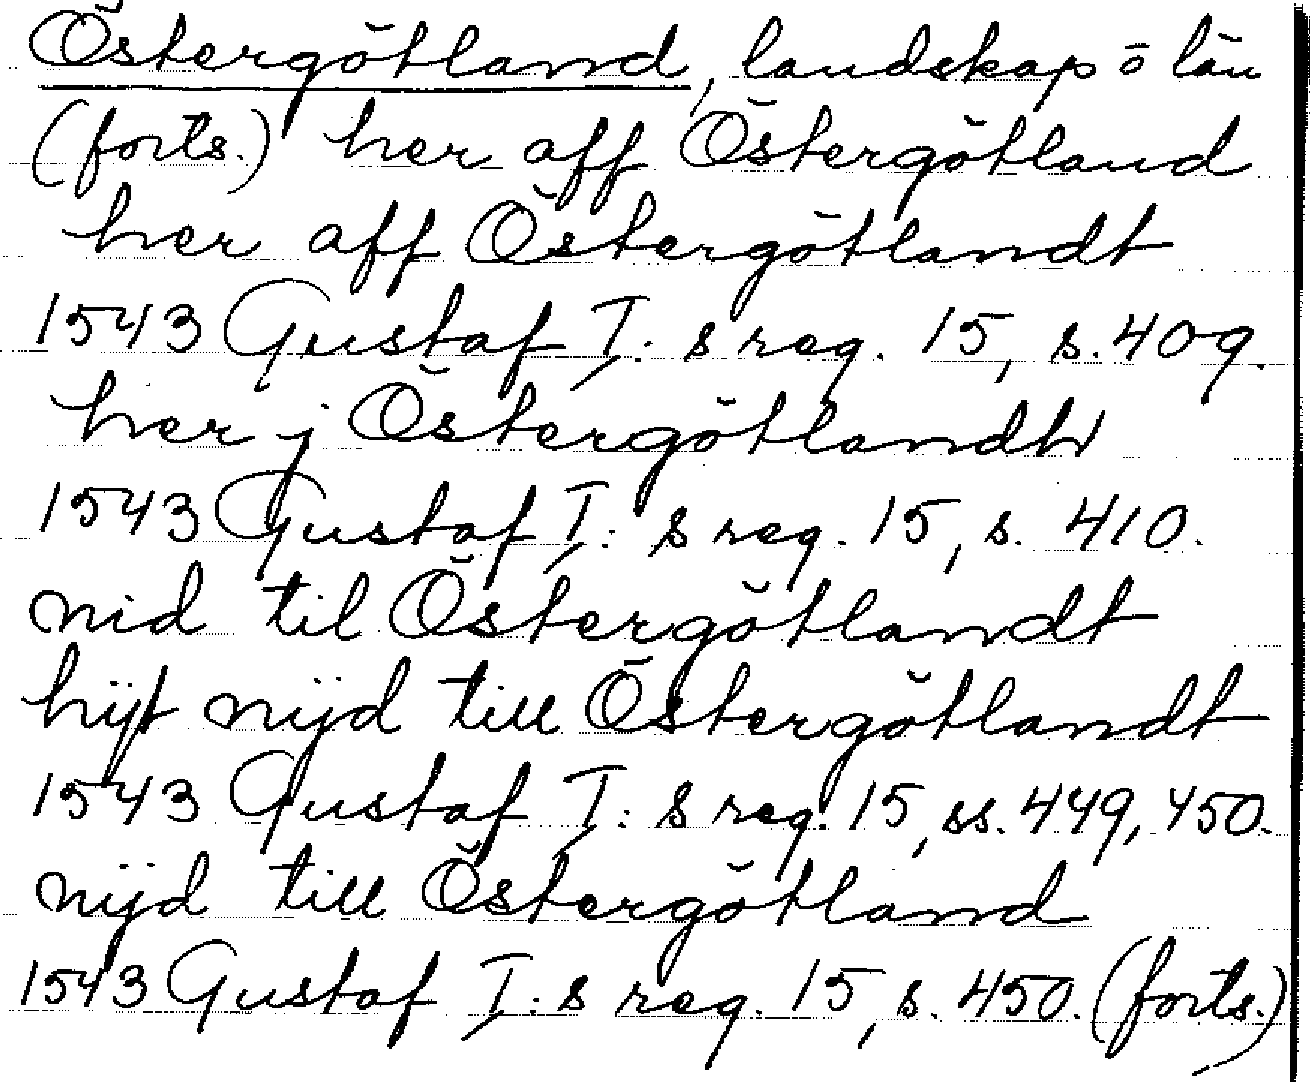 Östergötland, landskap o län
(forts.) her aff Östergötland
her aff Östergötlandt
1543 Gustaf I:s reg. 15, s. 409.
her j Östergötlandh
1543 Gustaf I:s reg. 15, s. 410.
nid til Östergötlandt
hijt nijd till Östergötlandt
1543 Gustaf I:s reg. 15, ss. 449, 450.
nijd till Östergötland
1543 Gustaf I:s reg. 15, s. 450. (forts.)